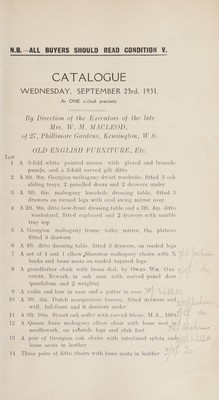 N.B.—ALL BUYERS SHOULD READ CONDITION V.
CATALOGUE
WEDNESDAY, SEPTEMBER 23rd, 1931,
At ONE o'clock precisely
By Direction of the Executors of the late
Mrs. W. M. MACLEOD,
of 27, Phillimore Gardens, Kensington, W.8.
OLD ENGLISH FURNITURE, Etc.
Lot
1 A 3-fold white painted screen with glazed and brocade
panels, and a 5-fold carved gilt ditto
2 A 3ft. 9in. Georgian mahogany dwarf wardrobe, fitted 3 oak
sliding trays, 2 panelled doors and 2 drawers under
3 A 3ft. 6in. mahogany kneehole dressing table, fitted 3
drawers on turned legs with oval swing mirror over
4 A 2ft. 9in. ditto bow-front dressing table and a 3ft. 4in. ditto
washstand, fitted cupboard and 2 drawers with marble
tray top
5 A Georgian mahogany frame toilet mirror, the plateau
fitted 3 drawers
6 A 4ft. ditto dressing table, fitted 3 drawers, on reeded legs
7 A set of 4 and 1 elbow Sheraton mahogany chairs with X
backs and loose seats on reeded tapered legs
8 A grandfather clock with brass dial, by
Newark, in oak case with carved panel door
(pendulum and 2 weights)
9 A violin and bow in case and a guitar in case
10 A 3ft. 3in. Dutch marqueterie bureau, fitted drawers and
well, fall-front and 6 drawers under
11 A 3ft. 10in. Stuart oak coffer with carved frieze, M.A.,
12 A Queen Anne mahogany elbow chair with loose seat in
needlework, on cabriole legs and club feet
13 A pair of Georgian oak chairs with interlaced splats and
loose seats in leather
14 Three pairs of ditto chairs with loose seats in leather